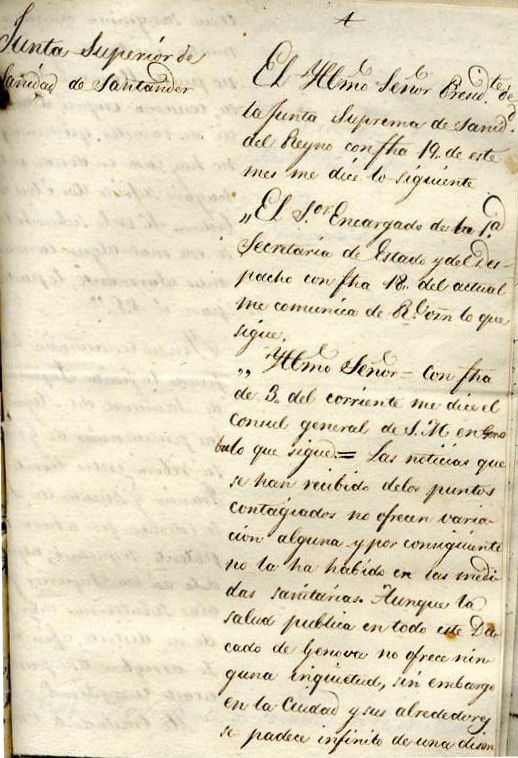 Junta Superior de
Sanidad de Santander
El Yllmo Señor Presidte de
la Junta Suprema de Sanid.d
del Reyno con fha 19. de este
mes me dice lo siguiente
„El S.or Encargado de la 1.a
Secretaria de Estado y del Des-
pacho con fha 18. del actual
me comunica de R.l orn lo que
sigue.
„ Yllmo Señor = Con fha
de 3. del corriente me dice el
Consul general de S. M en Geno
va lo que sigue. = Las noticias que
se han recibido delos puntos
contagiados no ofrecen varia-
ción alguna y por consiguiente
no la ha habido en las medi
das sanitarias. Aunque la
salud publica en todo este Du
cado de Genova no ofrece nin-
guna inquietud, sin embargo
en la Ciudad y sus alrededores
se padece infinito de una disen